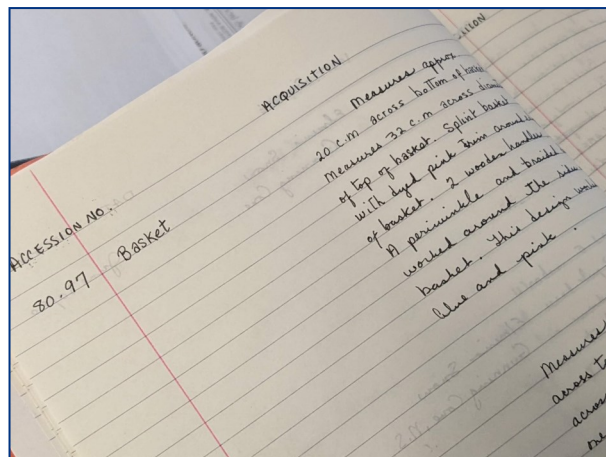 ACQUISITION
ACCESSION NO.
80.97 Basket
Measures approx
20 c.m across bottom of
Measures 32 c.m across
of top of basket. Splint basket
with dyed pink trim around
of basket. 2 wooden handles
A periwinkle and braided
worked around the
basket. This design
blue and pink.
Measures
across
across
one